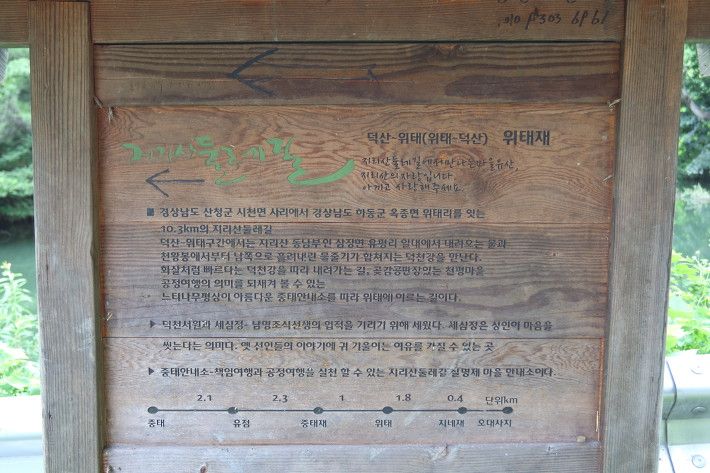 덕산-위태(위태-덕산) 위태재
지리산둘레길
지리산둘레길에서 만나는 마을유산,
지리산의 자랑입니다.
아끼고 사랑해주세요.
■ 경상남도 산청군 시천면 사리에서 경상남도 하동군 옥종면 위태리를 잇는
10.3km의 지리산둘레길
덕산-위태구간에서는 지리산 동남부인 삼장면 유평리 일대에서 내려오는 물과
천왕봉에서부터 남쪽으로 흘러내린 물줄기가 합쳐지는 덕천강을 만난다.
화살처럼 빠르다는 덕천강을 따라 내려가는 길, 곶감공판장있는 천평마을
공정여행의 의미를 되새겨 볼 수 있는
느티나무평상이 아름다운 중태안내소를 따라 위태에 이르는 길이다.
▶ 덕천서원과 세심정- 남명조식선생의 업적을 기리기 위해 세웠다. 세심정은 성인이 마음을
씻는다는 의미다. 옛 선인들의 이야기에 귀 기울이는 여유를 가질 수 있는 곳
▶ 중태안내소-책임여행과 공정여행을 실천 할 수 있는 지리산둘레길 실명제 마을 안내소이다.
2.1 2.3 1 1.8 0.4 단위km
중태 유점 중태재 위태 지네재 오대사지